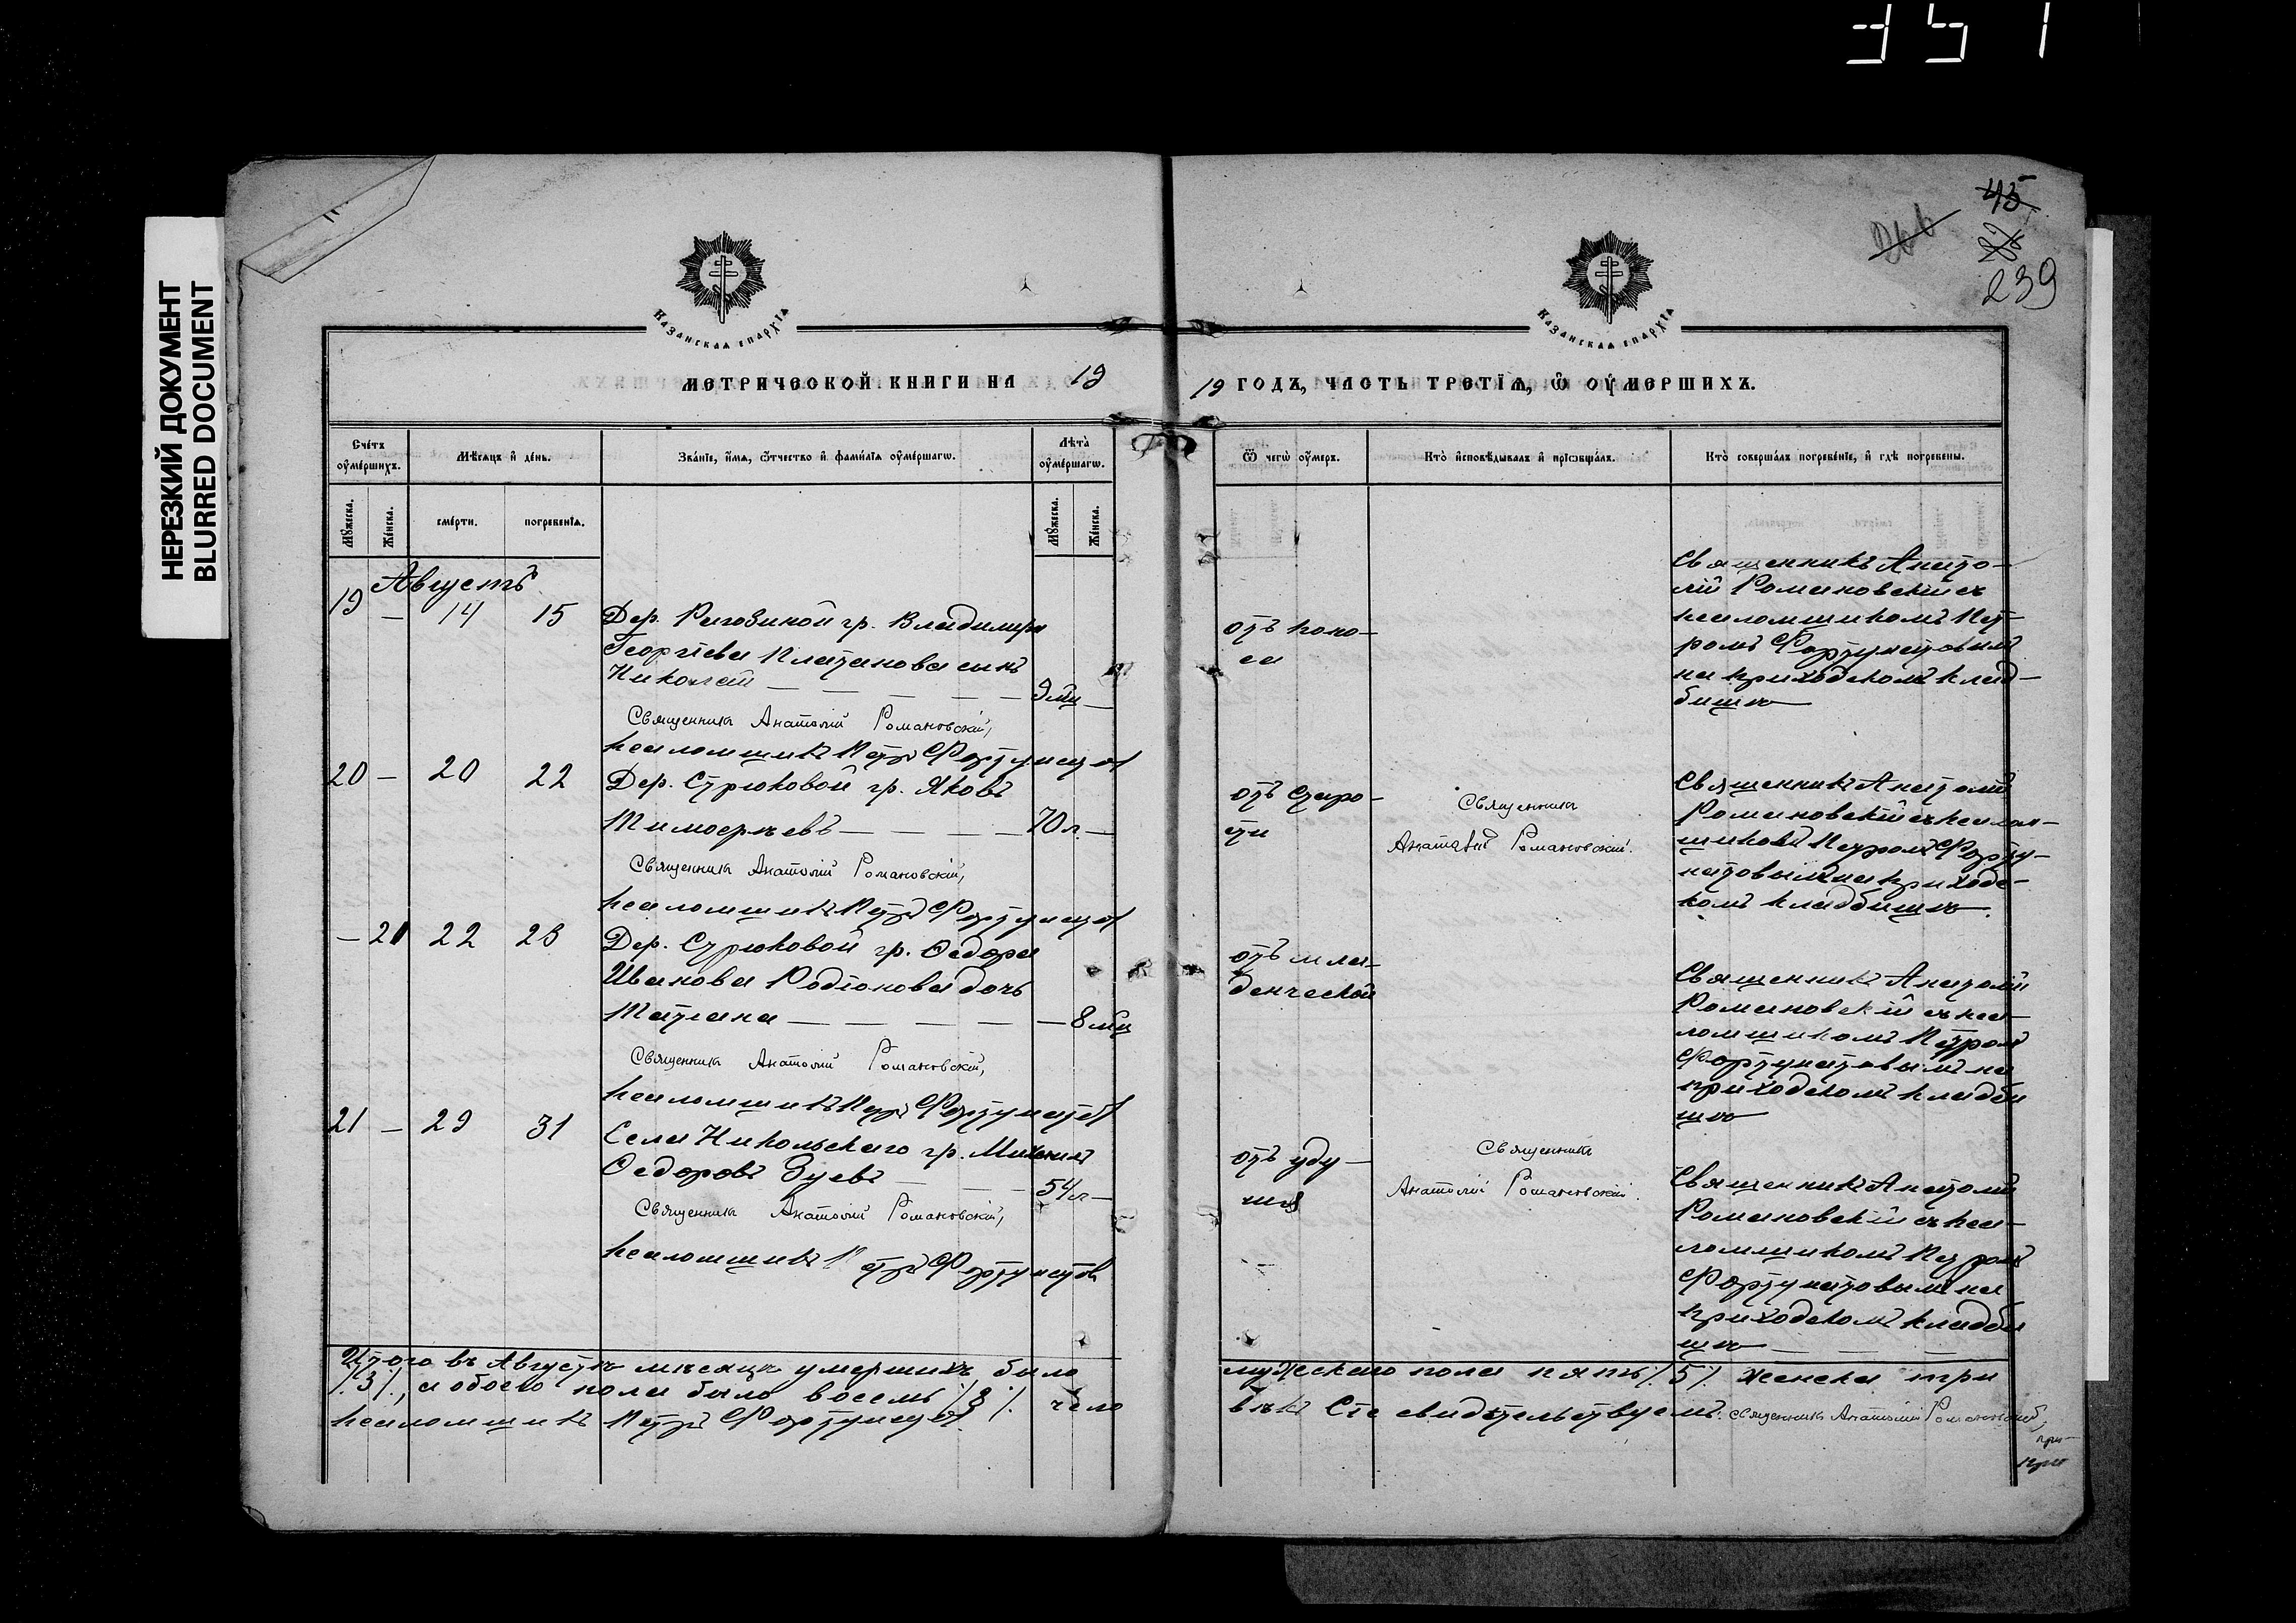 351
НЕРЕЗКИЙ ДОКУМЕНТ
BLURRED DOCUMENT
45
239
КАЗАНСКАЯ ЕПАРХІЯ
КАЗАНСКАЯ ЕПАРХІЯ
МЕТРИЧЕСКОЙ КНИГИ НА 19
19 ГОДЪ, ЧАСТЬ ТРЕТІѦ, Ѿ ОУМЕРШИХЪ.
Счетъ оумершихъ.
Мѣсяцъ и день.
Званіе, имя, ѿтчество и фамилія оумершагѡ.
Лѣта оумершагѡ.
Ѿ чегѡ оумеръ.
Кто исповѣдывалъ и пріѡбщалъ.
Кто совершалъ погребеніе, и гдѣ погребены.
Мужеска.
Женска.
смерти.
погребенія.
Мужеска.
Женска.
Августъ
19 — 14 15 Дер. Рагозиной гр. Владимира
Георгіева Платанова сынъ
Николай — — — — — 9 мц —
Священникъ Анатолій Романовскій,
псаломщикъ Петръ Фортунатов
отъ поно-
са
Священникъ Анато-
лій Романовскій съ
псаломщикомъ Пет-
ромъ Фортунатовымъ
на приходскомъ клад-
бищѣ
20 — 20 22 Дер. Стрюковой гр. Яковъ
Тимофеевъ — — — — 70 л —
Священникъ Анатолій Романовскій,
псаломщикъ Петръ Фортунатов
отъ старо-
сти
Священникъ
Анатолій Романовскій.
Священникъ Анатолій
Романовскій съ псалом-
щикомъ Петромъ Форту-
натовымъ на приходс-
комъ кладбищѣ.
— 21 22 23 Дер. Стрюковой гр. Федора
Иванова Родіонова дочь
Татіана — — — — — 8 мц
Священникъ Анатолій Романовскій,
псаломщикъ Петръ Фортунатов
отъ мла-
денческой
Священникъ Анатолій
Романовскій съ пса-
ломщикомъ Петромъ
Фортунатовымъ на
приходскомъ кладби
щѣ
21 — 29 31 Села Никольскаго гр. Михаилъ
Федоровъ Зуевъ — — 54 л —
Священникъ Анатолій Романовскій,
псаломщикъ Петръ Фортунатов
отъ уду-
шья
Священникъ
Анатолій Романовскій.
Священникъ Анатолій
Романовскій съ пса-
ломщикомъ Петромъ
Фортунатовымъ на
приходскомъ кладби
щѣ — — —
Итого въ Августѣ мѣсяцѣ умершихъ было мужескаго пола пять /.5/. женска три
/.3/., а обоего пола было восемь /.8/. чело вѣкъ Сіе свидѣтельствуемъ: Священникъ Анатолій Романовскій,
псаломщикъ Петръ Фортунатов.